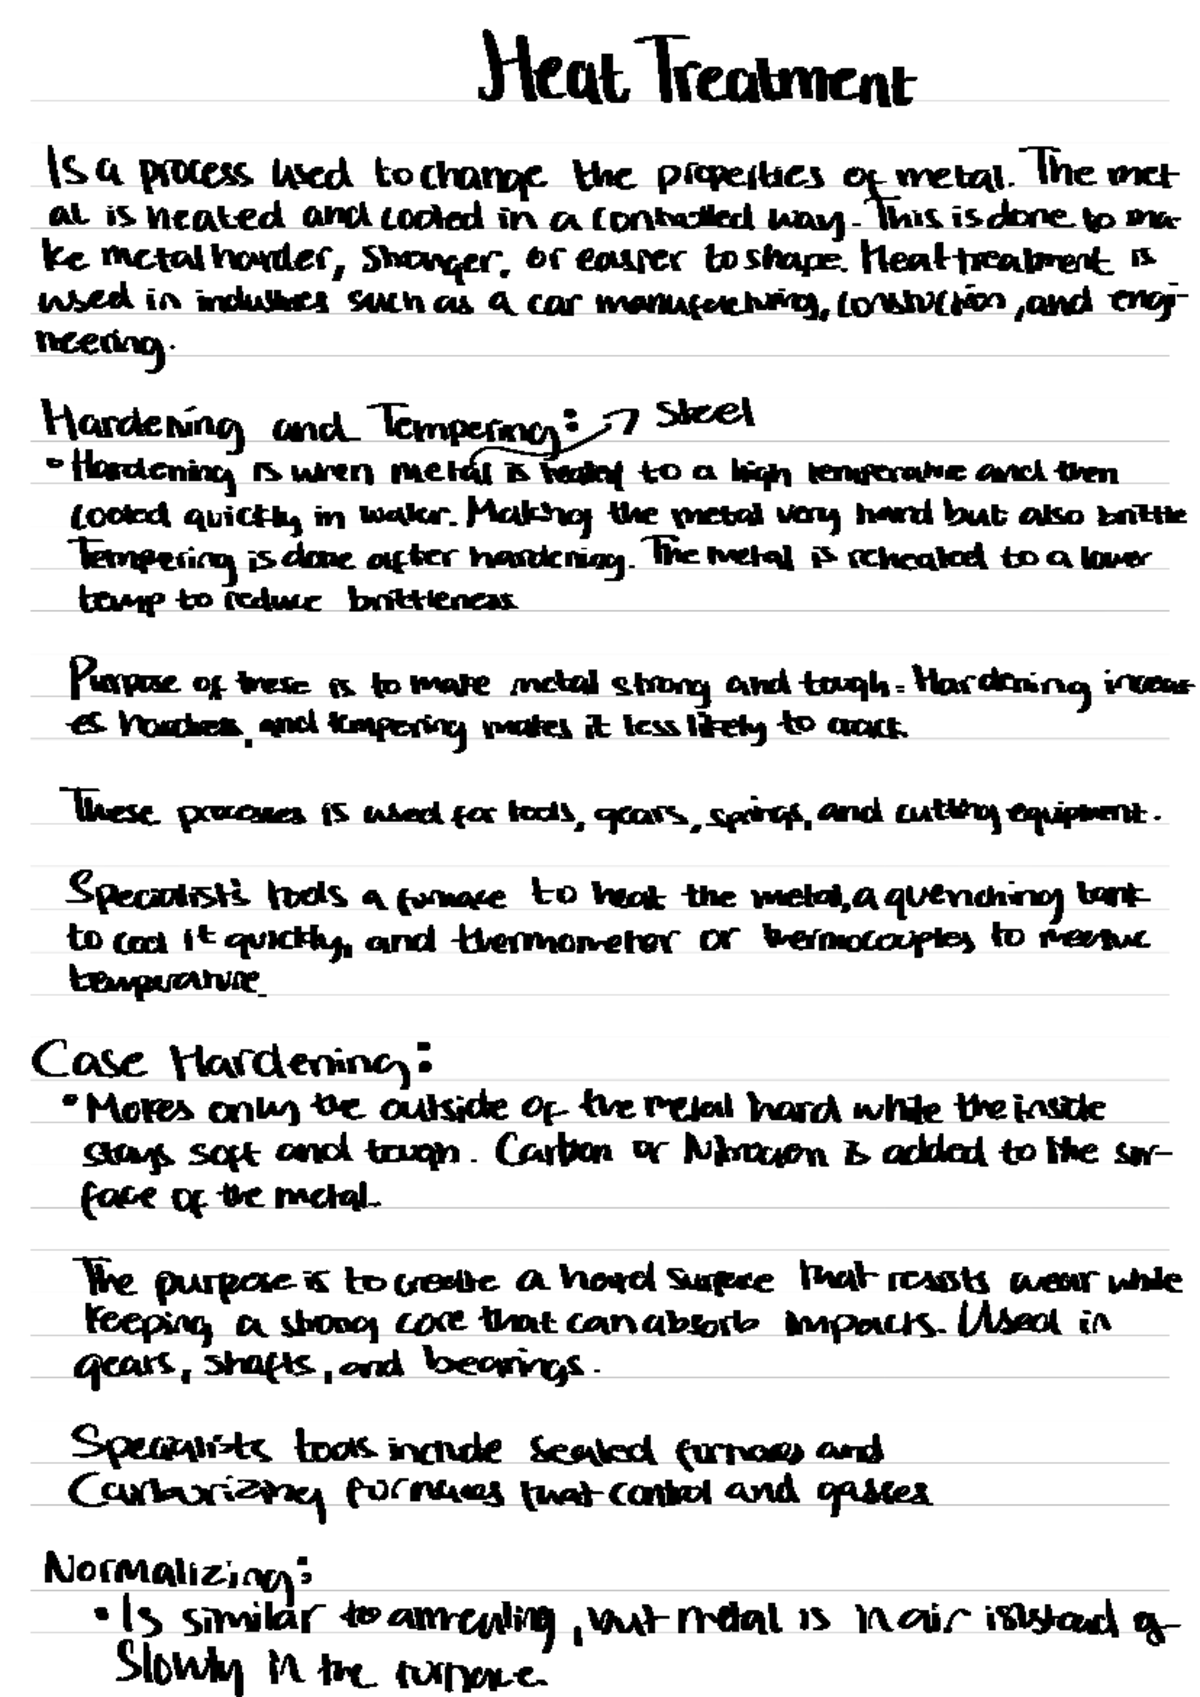 Heat Treatment
Is a process used to change the properties of metal. The met
al is heated and cooled in a controlled way. This is done to ma-
ke metal harder, Stronger, or easier to shape. Heat treatment is
used in industries such as a car manufacturing, constuction, and engi-
neering.
Hardening and Tempering: → Steel
• Hardening is when metal is heated to a high temperature and then
cooled quickly in water. Making the metal very hard but also brittle
Tempering is done after hardening. The metal is reheated to a lower
temp to reduce brittleness
Purpose of these is to make metal strong and tough. Hardening increas-
es hardness, and tempering makes it less likely to crack.
These processes is used for tools, gears, springs, and cutting equipment.
Specialist's tools a furnace to heat the metal, a quenching tank
to cool it quickly, and thermometer or thermocouples to measure
temperature.
Case Hardening:
• Makes only the outside of the metal hard while the inside
stays soft and tough. Carbon or Nitrogen is added to the sur-
face of the metal.
The purpose is to create a hard surface that resists wear while
keeping a strong core that can absorb impacts. Used in
gears, shafts, and bearings.
Specialists tools include sealed furnaces and
Carburizing furnaces that control and gasses
Normalizing:
• Is similar to annealing, but metal is in air instead of
Slowly in the furnace.